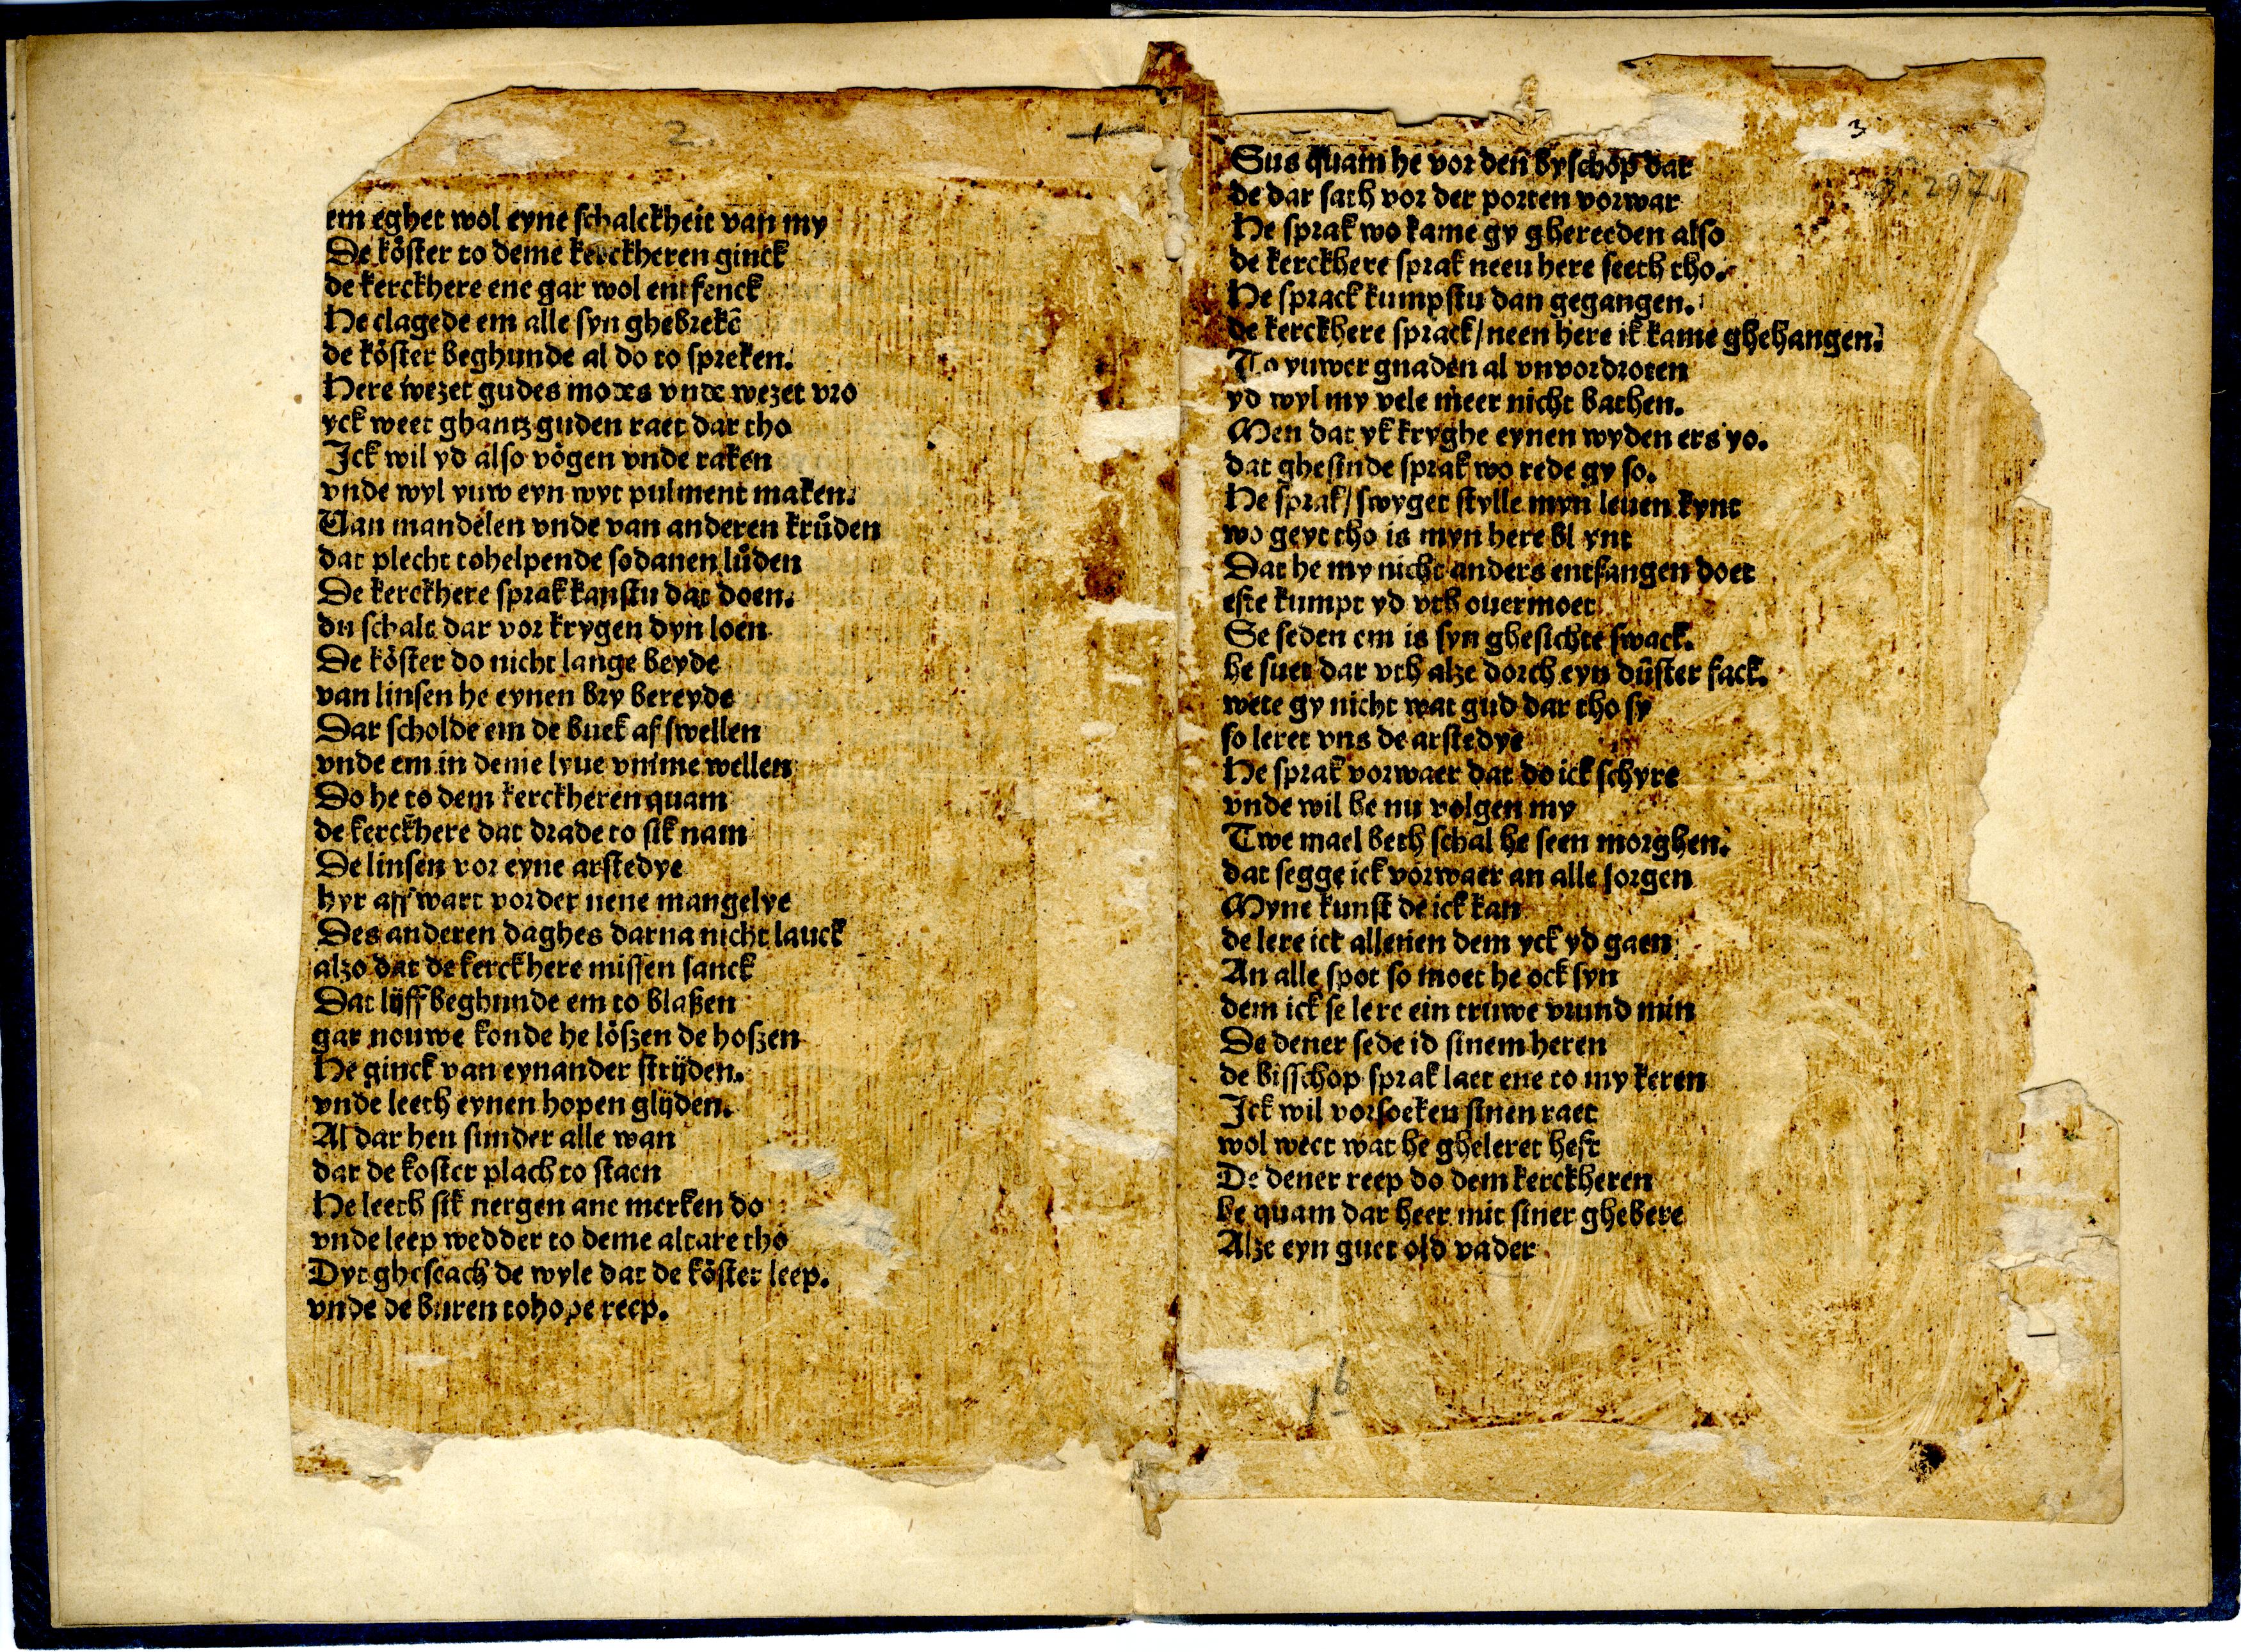 2.
em eghet wol eyne schalckheit van my
De köster to deme kerckheren ginck
de kerckhere ene gar wol entfenck
He clagede em alle syn ghebrekē
de köster beghunde al do to spreken.
Here wezet gudes modes vnde wezet vro
yck weet ghantz guden raet dar tho
Ick wil yd also vögen vnde raken
vnde wyl yuw eyn wyt pulment maken.
Uan mandelen vnde van anderen krůden
dat plecht tohelpende sodanen lůden
De kerckhere sprak kanstu dat doen.
du schalt dar vor krygen dyn loen
De köster do nicht lange beyde
van linsen he eynen bry bereyde
Dar scholde em de buek af swellen
vnde em in deme lyue vmme wellen
Do he to dem kerckheren quam
de kerckhere dat drade to sik nam
De linsen vor eyne arstedye
hyr aff wart vorder nene mangelye
Des anderen daghes darna nicht lauck
alzo dat de kerckhere missen sanck
Dat lijff beghunde em to blaßen
gar nouwe konde he lößen de hoßen
He ginck van eynander strijden.
vnde leeth eynen hopen glijden.
Al dar hen sunder alle wan
dar de koster plach to staen
He leeth sik nergen ane merken do
vnde leep wedder to deme altare tho
Dyt gheseach de wyle dat de köster leep.
vnde de buren tohope reep.
3
297
Sus quam he vor den byschop dar
de dar sath vor der porten vorwar
He sprak wo kame gy ghereeden also
de kerckhere sprak neen here seeth tho.
He sprack kumpstu dan gegangen.
de kerckhere sprack/ neen here ik kame ghehangen.
To yuwer gnaden al vnvordroten
yd wyl my vele meer nicht bathen.
Men dat yk kryghe eynen wyden ers yo.
dat ghesinde sprak wo rede gy so.
He sprak/ swyget stylle myn leuen kynt
wo geyt tho is myn here bl ynt
Dat he my nicht anders entfangen doet
efte kumpt yd vth ouermoet
Se seden em is syn ghesichte swack.
he suet dar vth alze dorch eyn düster sack.
wete gy nicht wat gud dar tho sy
so leret vns de arstedye
He sprak vorwaer dat do ick schyre
vnde wil he nu volgen my
Twe mael beth schal he seen morghen.
dat segge ick vorwaer an alle sorgen
Myne kunst de ick kan
de lere ick allenen dem yck yd gaen
An alle spot so moet he ock syn
dem ick se lere ein truwe vrund min
De dener sede id sinem heren
de bisschop sprak laet ene to my keren
Ick wil vorsoeken sinen raet
wol weet wat he gheleret heft
De dener reep do dem kerckheren
he quam dar heer mit siner ghebere
Alze eyn guet old vader
1b